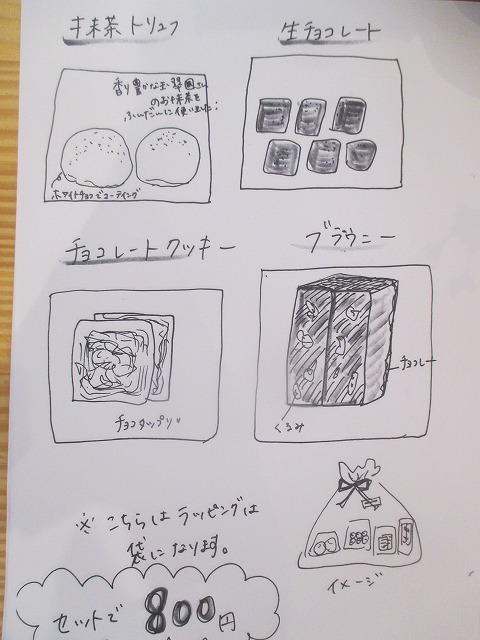 抹茶トリュフ
生チョコレート
香り豊かな玉翠園さん
のお抹茶を
ふんだんに使いました!
ホワイトチョコでコーティング
チョコレートクッキー
ブラウニー
チョコタップリ
チョコレート
くるみ
※こちらはラッピングは
袋になります。
イメージ
セットで800円